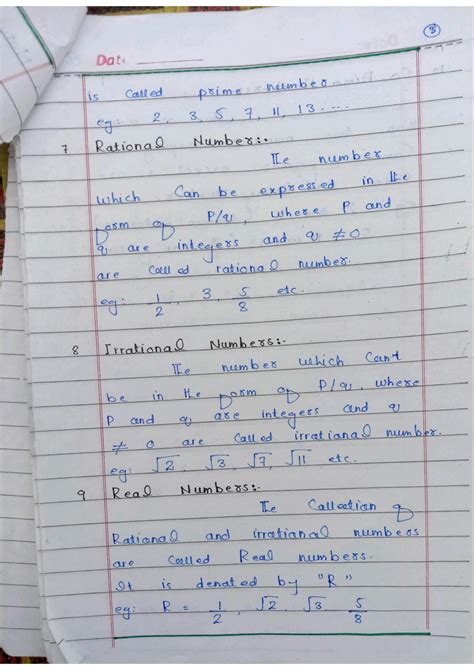 8
Date
is called prime number.
eg: 2, 3, 5, 7, 11, 13 ....
7 Rational Number:-
The number
which can be expressed in the
form of P/q, where P and
q are integers and q ≠0
are called rational number.
eg: 1/2, 3, 5/8 etc.
8 Irrational Numbers:-
The number which can't
be in the form of P/q, where
P and q are integers and q
≠ 0 are called irrational number.
eg: √2, √3, √7, √11 etc.
9 Real Numbers:-
The Collection of
Rational and irrational numbers
are called Real numbers.
It is denoted by "R"
eg: R = 1/2, √2, √3, 5/8